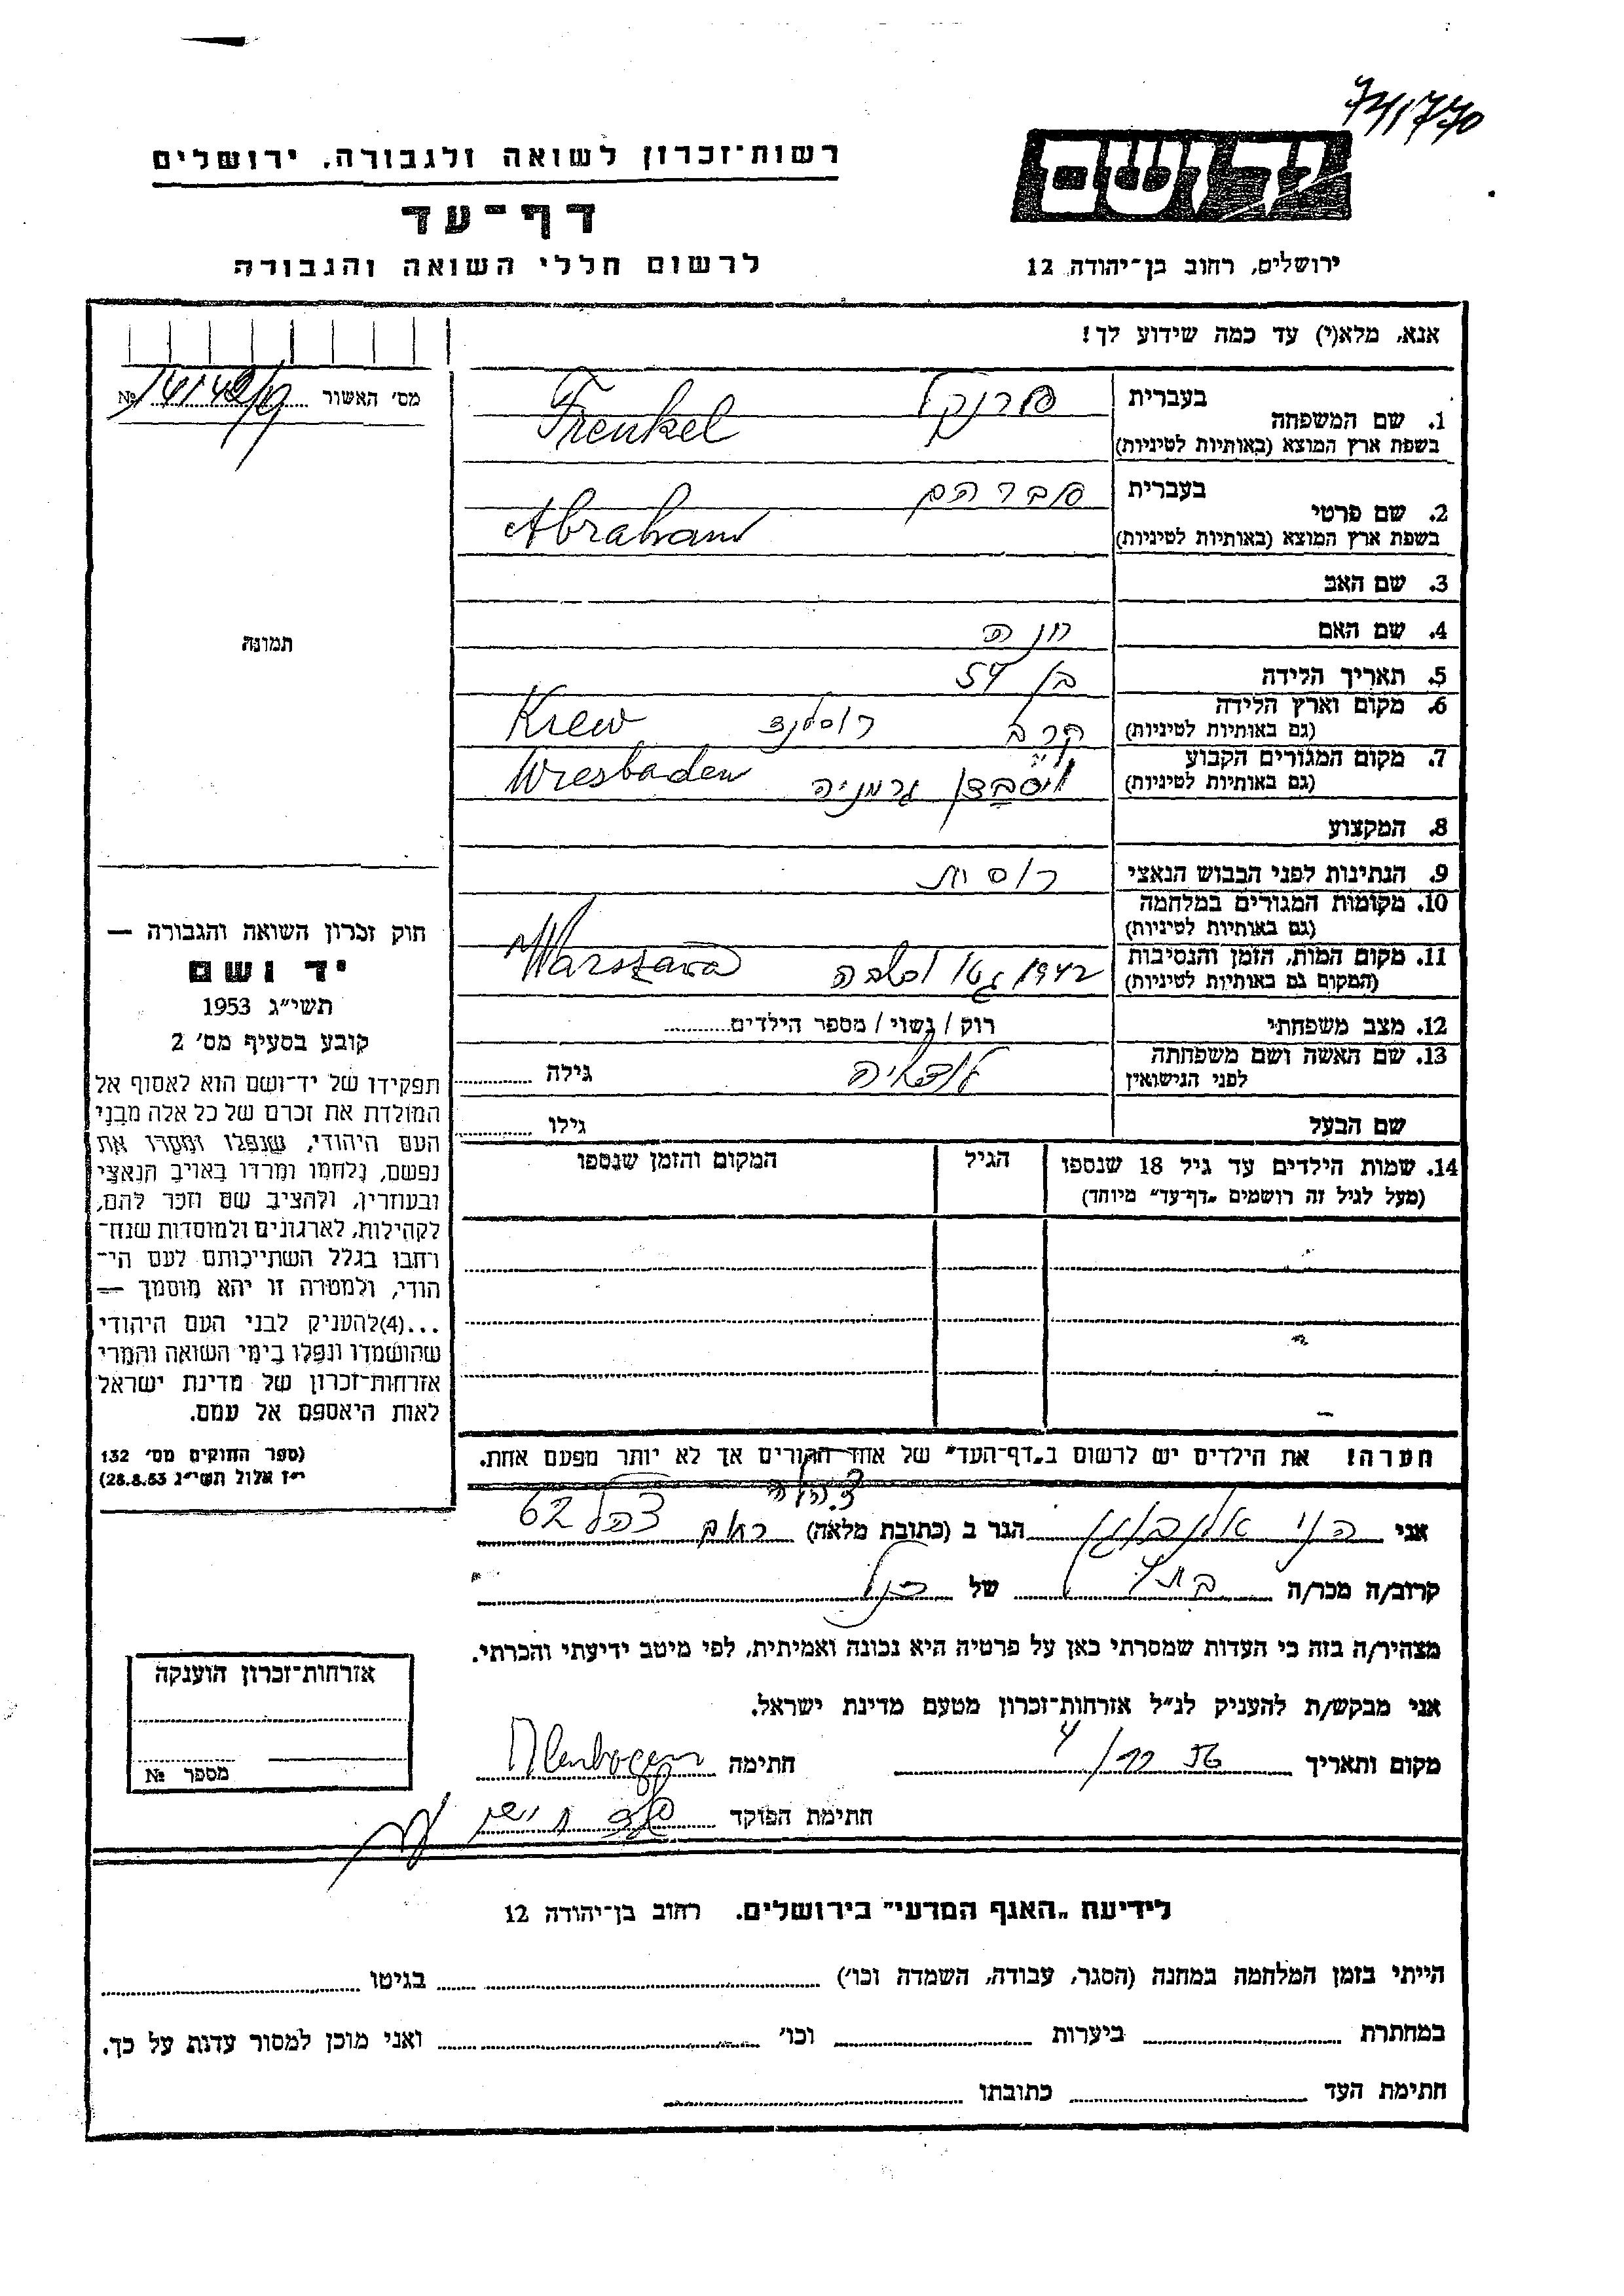 רשות-זכרון לשואה ולגבורה, ירושלים
דף-עד
לרשום חללי השואה והגבורה
יד ושם
ירושלים, רחוב בן-יהודה 12
אנא, מלא(י) עד כמה שידוע לך!
מס' האשור № 
1. שם המשפחה
בעברית פרנקל
בשפת ארץ המוצא (באותיות לטיניות) Frenkel
2. שם פרטי
בעברית אברהם
בשפת ארץ המוצא (באותיות לטיניות) Abraham
3. שם האב
4. שם האם חנה
5. תאריך הלידה בן 54
6. מקום וארץ הלידה
(גם באותיות לטיניות) Krew
7. מקום המגורים הקבוע
(גם באותיות לטיניות) ויסבדן גרמניה Wiesbaden
8. המקצוע
9. הנתינות לפני הכבוש הנאצי רוסית
10. מקומות המגורים במלחמה
(גם באותיות לטיניות)
11. מקום המות, הזמן והנסיבות
(המקום גם באותיות לטיניות) 1942 גטו Warszawa
12. מצב משפחתי רוק / נשוי / מספר הילדים
13. שם האשה ושם משפחתה
לפני הנישואין גילה
שם הבעל גילו
14. שמות הילדים עד גיל 18 שנספו
(מעל לגיל זה רושמים „דף-עד" מיוחד)
הגיל
המקום והזמן שנספו
הערה! את הילדים יש לרשום ב„דף-העד" של אחד ההורים אך לא יותר מפעם אחת.
תמונה
חוק זכרון השואה והגבורה —
יד ושם
תשי"ג 1953
קובע בסעיף מס' 2
תפקידו של יד-ושם הוא לאסוף אל
המולדת את זכרם של כל אלה מבני
העם היהודי, שנפלו ומסרו את
נפשם, נלחמו ומרדו באויב הנאצי
ובעוזריו, ולהציב שם וזכר להם,
לקהילות, לארגונים ולמוסדות שנח-
רחבו בגלל השתייכותם לעם הי-
הודי, ולמטרה זו יהא מוסמך —
...(4)להעניק לבני העם היהודי
שהושמדו ונפלו בימי השואה והמרי
אזרחות-זכרון של מדינת ישראל
לאות היאספם אל עמם.
(ספר החוקים מס' 132
י"ז אלול תשי"ג 28.8.53)
אני הגר ב (כתובת מלאה) רחוב צהל 62
קרוב/ה מכר/ה של
מצהיר/ה בזה כי העדות שמסרתי כאן על פרטיה היא נכונה ואמיתית, לפי מיטב ידיעתי והכרתי.
אני מבקש/ת להעניק לנ"ל אזרחות-זכרון מטעם מדינת ישראל.
מקום ותאריך חתימה
חתימת הפוקד
אזרחות-זכרון הוענקה
מספר №
לידיעת „האגף המדעי" בירושלים. רחוב בן-יהודה 12
הייתי בזמן המלחמה במחנה (הסגר, עבודה, השמדה וכו') בגיטו
במחתרת ביערות וכו' ואני מוכן למסור עדות על כך.
חתימת העד כתובתו